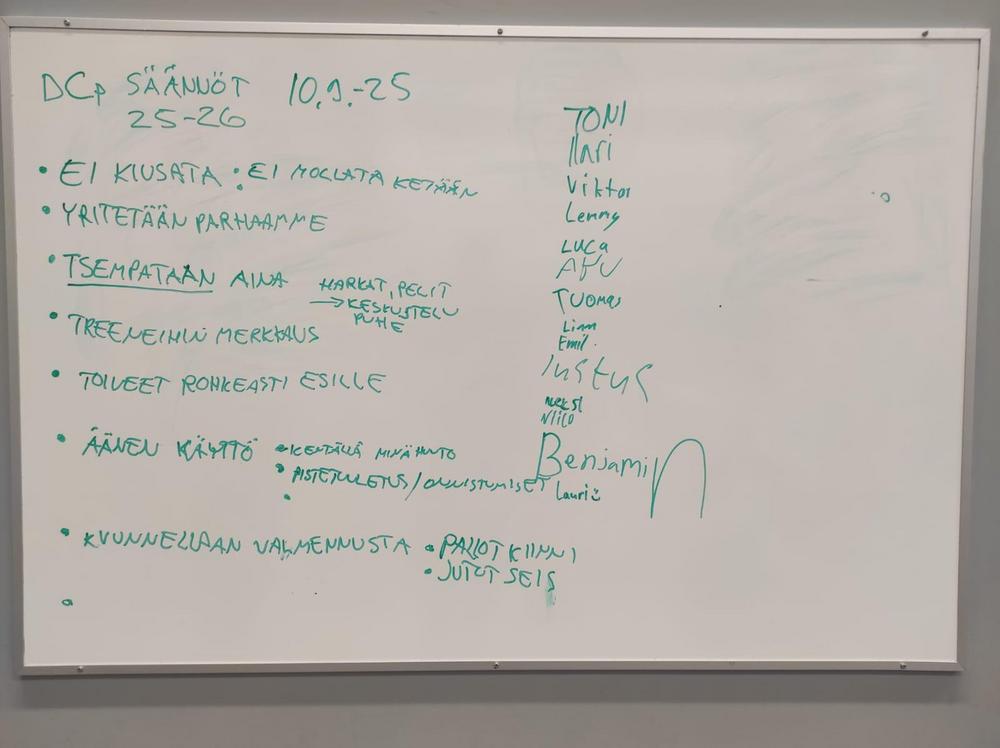 DCp SÄÄNNÖT 10.9.-25
25-26
• EI KIUSATA • EI MOLLATA KETÄÄN
• YRITETÄÄN PARHAAMME
• TSEMPATAAN AINA HARKAT, PELIT
→ KESKUSTELU
PUHE
• TREENEIHIN MERKKAUS
• TOIVEET ROHKEASTI ESILLE
• ÄÄNEN KÄYTTÖ • KENTÄLLÄ MINÄ HUUTO
• PISTETUULETUS/ONNISTUMISET
•
• KUUNNELLAAN VALMENNUSTA • PALLOT KIINNI
• JUTUT SEIS
•
TONI
Ilari
Viktor
Lenny
LUCA
AFU
TUOMAS
Liam
Emil
Justus
Niilo
Benjamin
Lauri